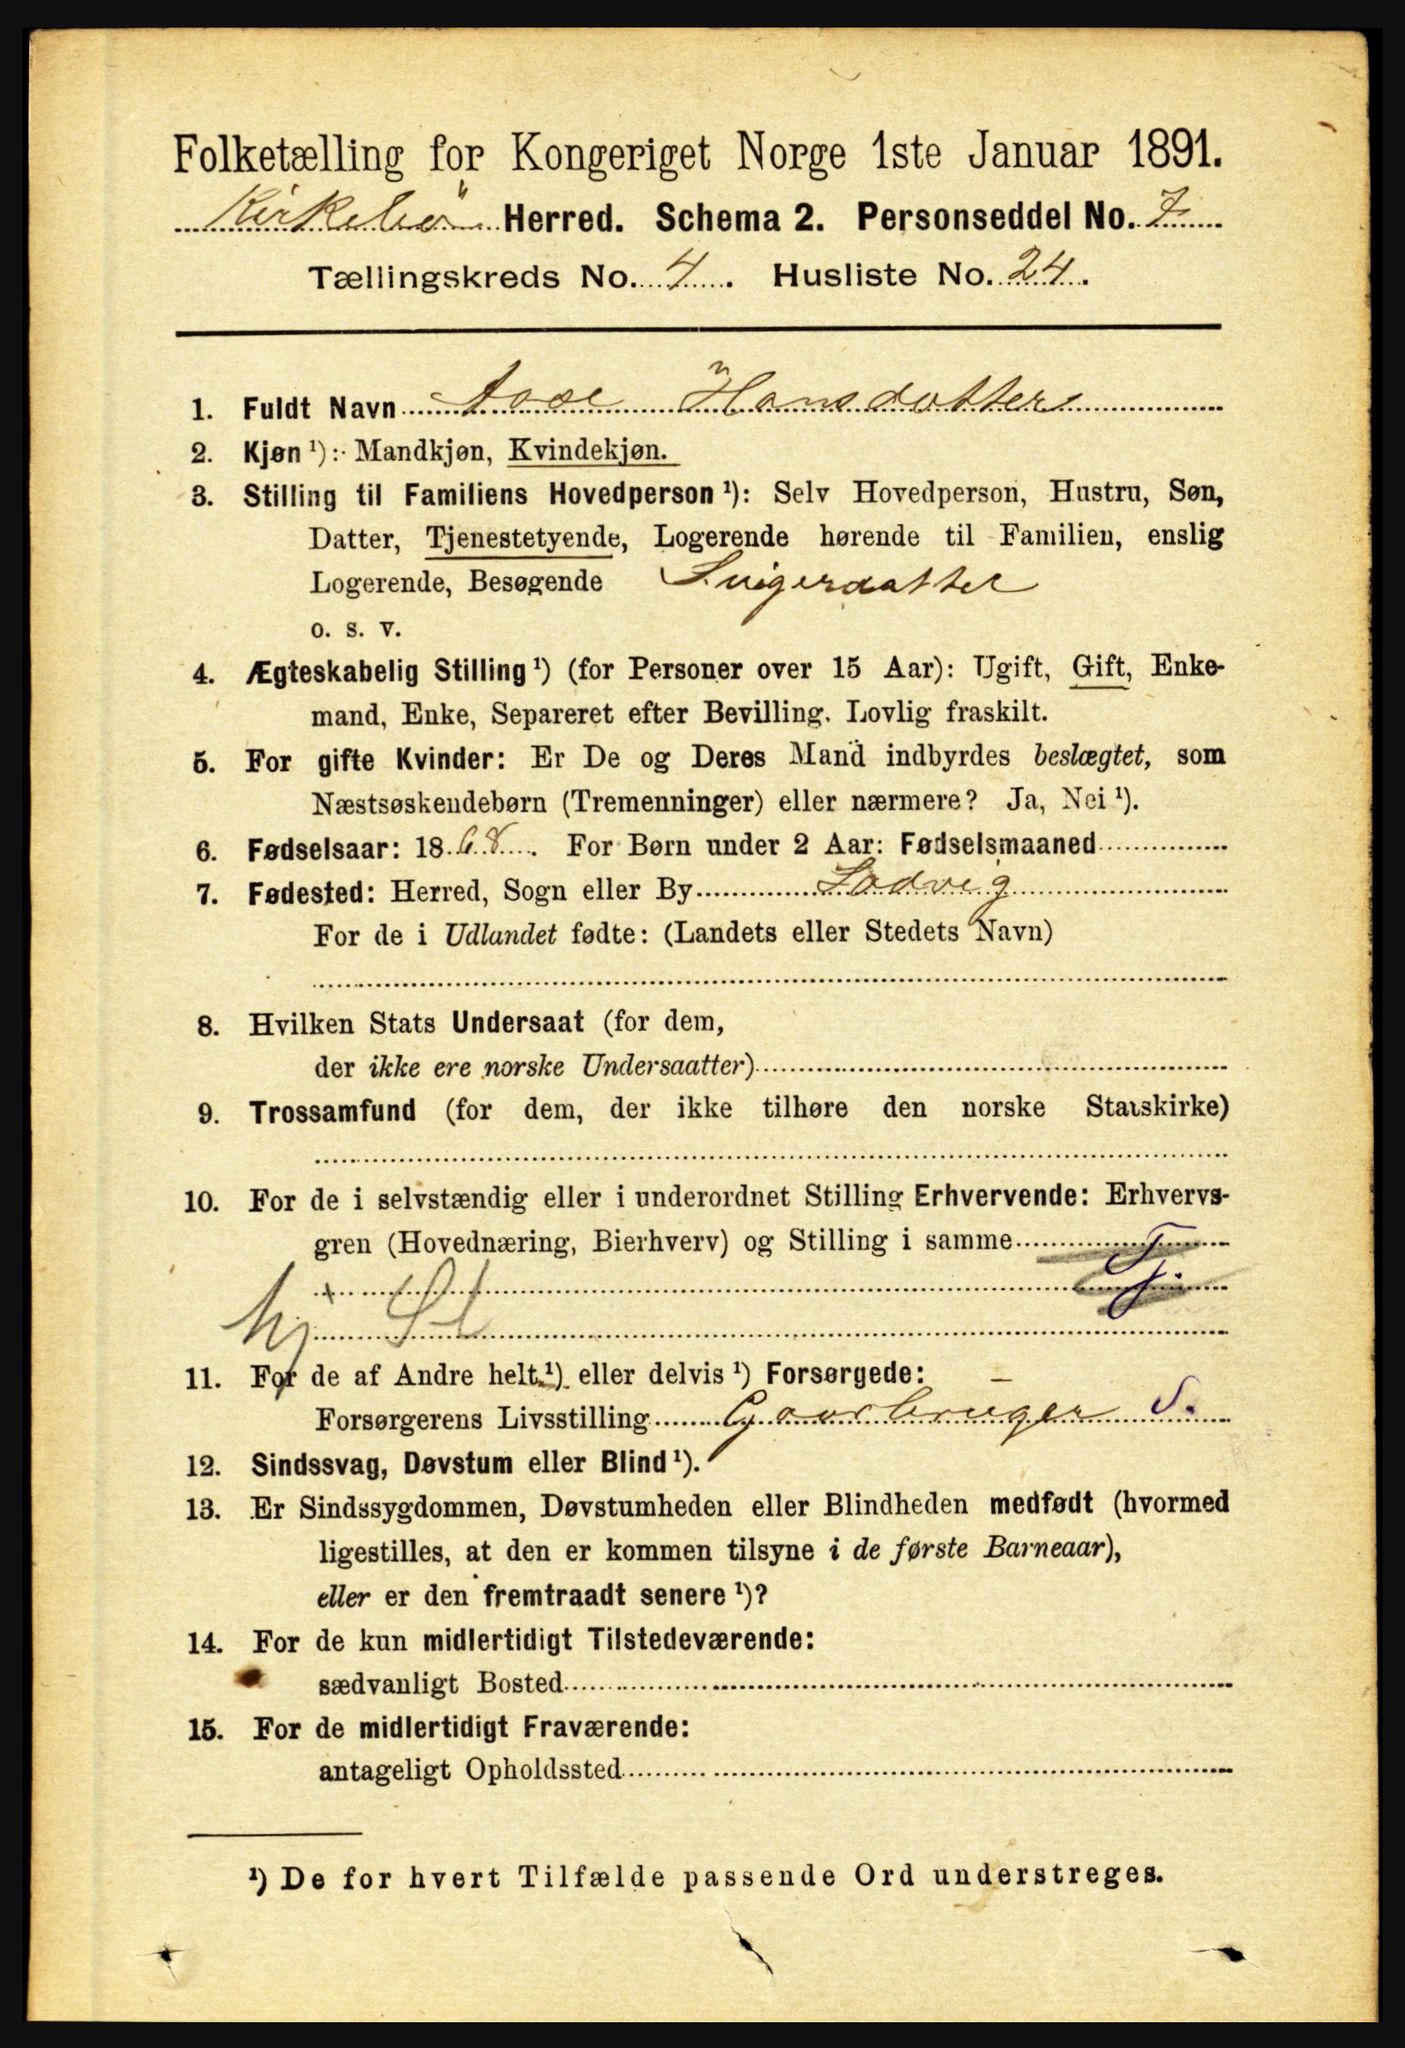 Folketælling for Kongeriget Norge 1ste Januar 1891.
Kirkebö Herred. Schema 2. Personseddel No. 7
Tællingskreds No. 4. Husliste No. 24.
1. Fuldt Navn Aase Hansdatter
2. Kjøn ¹): Mandkjøn, Kvindekjøn.
3. Stilling til Familiens Hovedperson ¹): Selv Hovedperson, Hustru, Søn,
Datter, Tjenestetyende, Logerende hørende til Familien, enslig
Logerende, Besøgende Svigerdatter
o. s. v.
4. Ægteskabelig Stilling ¹) (for Personer over 15 Aar): Ugift, Gift, Enke-
mand, Enke, Separeret efter Bevilling. Lovlig fraskilt.
5. For gifte Kvinder: Er De og Deres Mand indbyrdes beslægtet, som
Næstsøskendebørn (Tremenninger) eller nærmere? Ja, Nei ¹).
6. Fødselsaar: 1868. For Børn under 2 Aar: Fødselsmaaned
7. Fødested: Herred, Sogn eller By Ladvig
For de i Udlandet fødte: (Landets eller Stedets Navn)
8. Hvilken Stats Undersaat (for dem,
der ikke ere norske Undersaatter)
9. Trossamfund (for dem, der ikke tilhøre den norske Statskirke)
10. For de i selvstændig eller i underordnet Stilling Erhvervende: Erhvervs-
gren (Hovednæring, Bierhverv) og Stilling i samme
11. For de af Andre helt ¹) eller delvis ¹) Forsørgede:
Forsørgerens Livsstilling Gaardbruger S.
12. Sindssvag, Døvstum eller Blind ¹).
13. Er Sindssygdommen, Døvstumheden eller Blindheden medfødt (hvormed
ligestilles, at den er kommen tilsyne i de første Barneaar),
eller er den fremtraadt senere ¹)?
14. For de kun midlertidigt Tilstedeværende:
sædvanligt Bosted
15. For de midlertidigt Fraværende:
antageligt Opholdssted
¹) De for hvert Tilfælde passende Ord understreges.